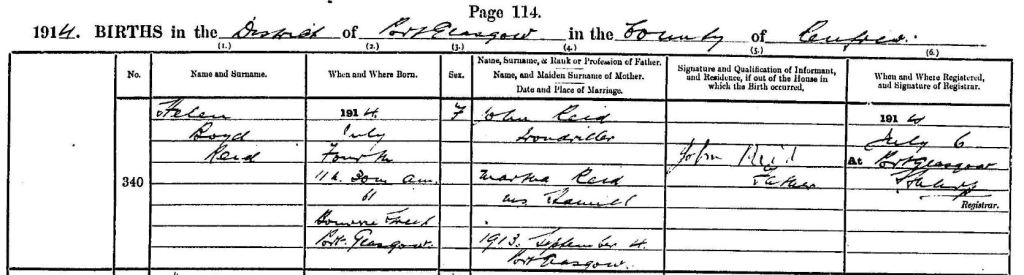 Page 114.
1914. BIRTHS in the District of Port Glasgow in the County of Renfrew.
(1.) (2.) (3.) (4.) (5.) (6.)
No.
Name and Surname.
When and Where Born.
Sex.
Name, Surname, & Rank or Profession of Father.
Name, and Maiden Surname of Mother.
Date and Place of Marriage.
Signature and Qualification of Informant,
and Residence, if out of the House in
which the Birth occurred.
When and Where Registered,
and Signature of Registrar.
340
Helen
Boyd
Reid
1914
July
Fourth
11 h. 30 m a.m.
61
Street
Port-Glasgow.
F
John Reid
Irondriller
Martha Reid
ms
1913. September 4.
Port Glasgow.
John Reid
Father
1914
July 6
At Port Glasgow
Registrar.